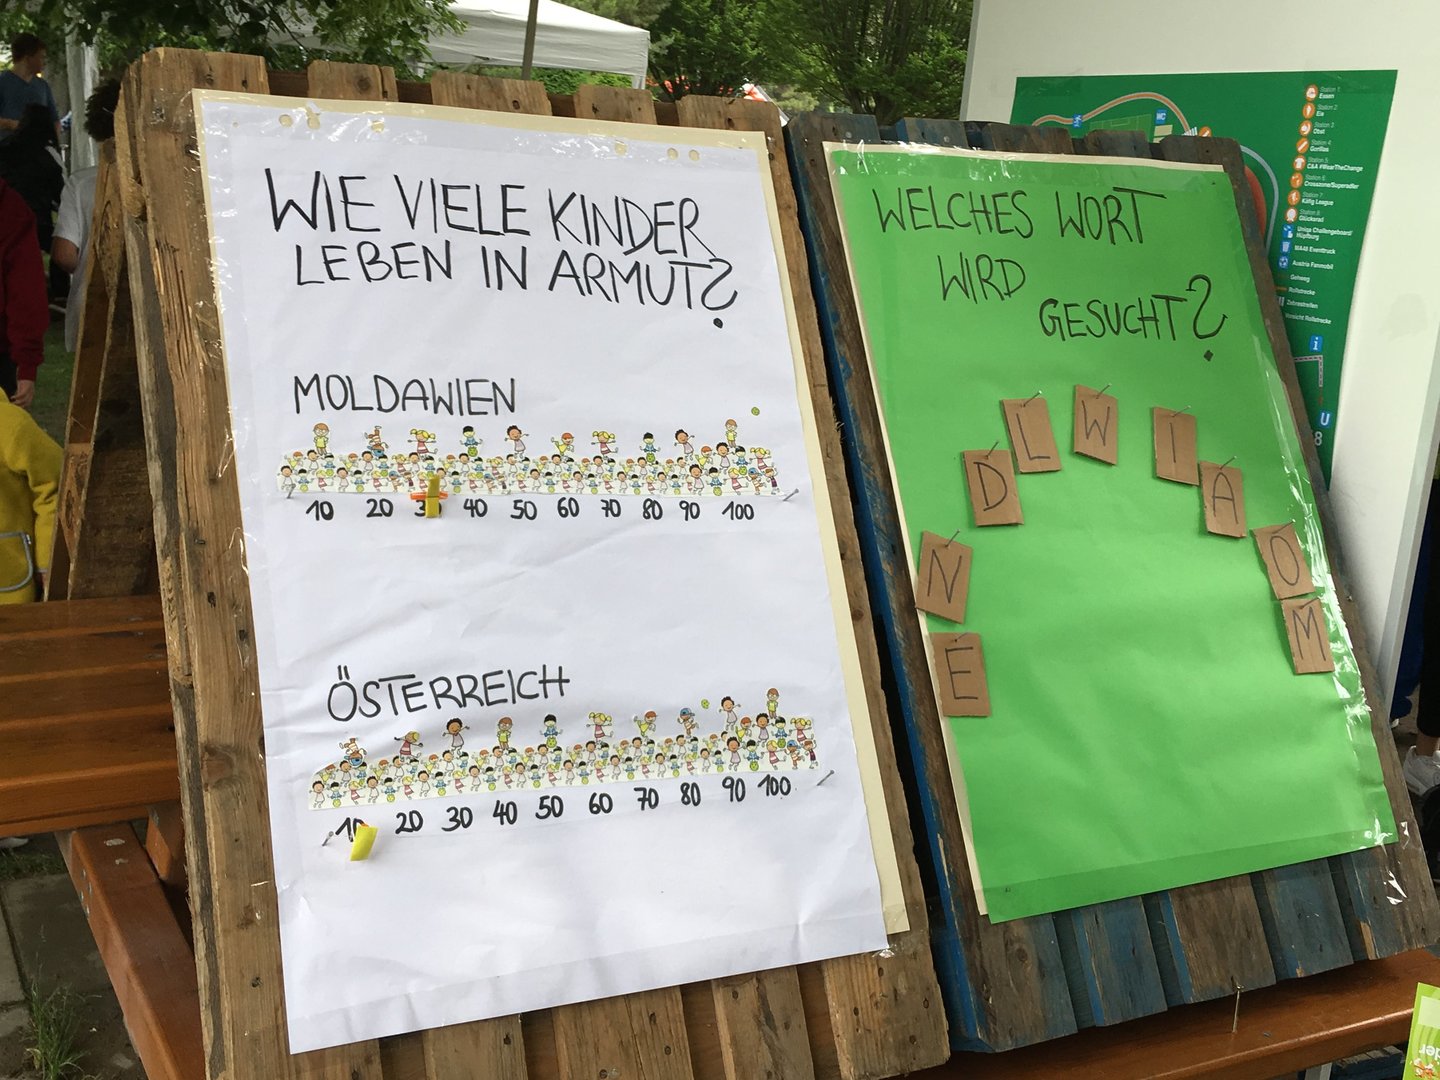 WIE VIELE KINDER
LEBEN IN ARMUT?
MOLDAWIEN
10 20 30 40 50 60 70 80 90 100
ÖSTERREICH
10 20 30 40 50 60 70 80 90 100
WELCHES WORT
WIRD
GESUCHT?
E N D L W I A O M
WC
Station 1:
Essen
Station 2:
Eis
Station 3:
Obst
Station 4:
Gorillas
Station 5:
C&A #WearTheChange
Station 6:
Crosszone/Superadler
Station 7:
Käfig League
Station 8:
Glücksrad
Uniqa Challengeboard/
Hüpfburg
MA48 Eventtruck
Austria Fanmobil
Gehweg
Rollstrecke
Zebrastreifen
Vorsicht Rollstrecke
i
U
8